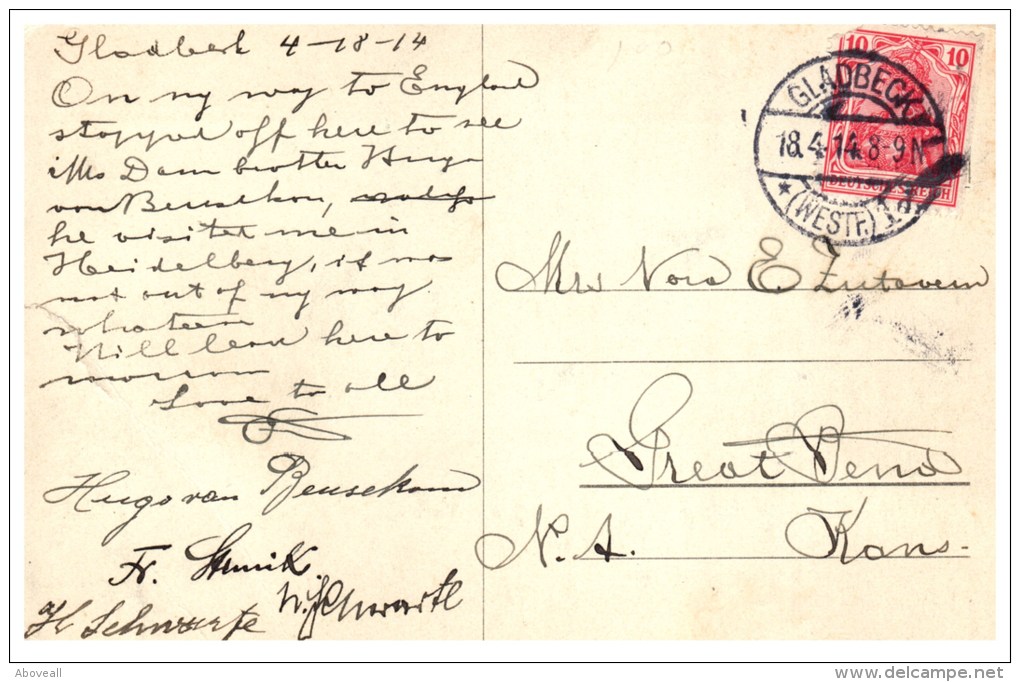 Gladbeck 4-18-14
On my way to England
stopped off here to see
Mrs Dam brother Hugo
von Beusekom,
he visited me in
Heidelberg, it was
not out of my way
whateve
Will leave here to
morrow
Love to all
Hugo van Beusekom
Fr.
H Schwarte
W. Schwartz
10 10
GLADBECK
18.4.14.8-9N
* (WESTF.) 1
DEUTSCHES REICH
Mrs Nora E Zutavern
Great Bend
N. A. Kans.
Aboveall
www.delcampe.net